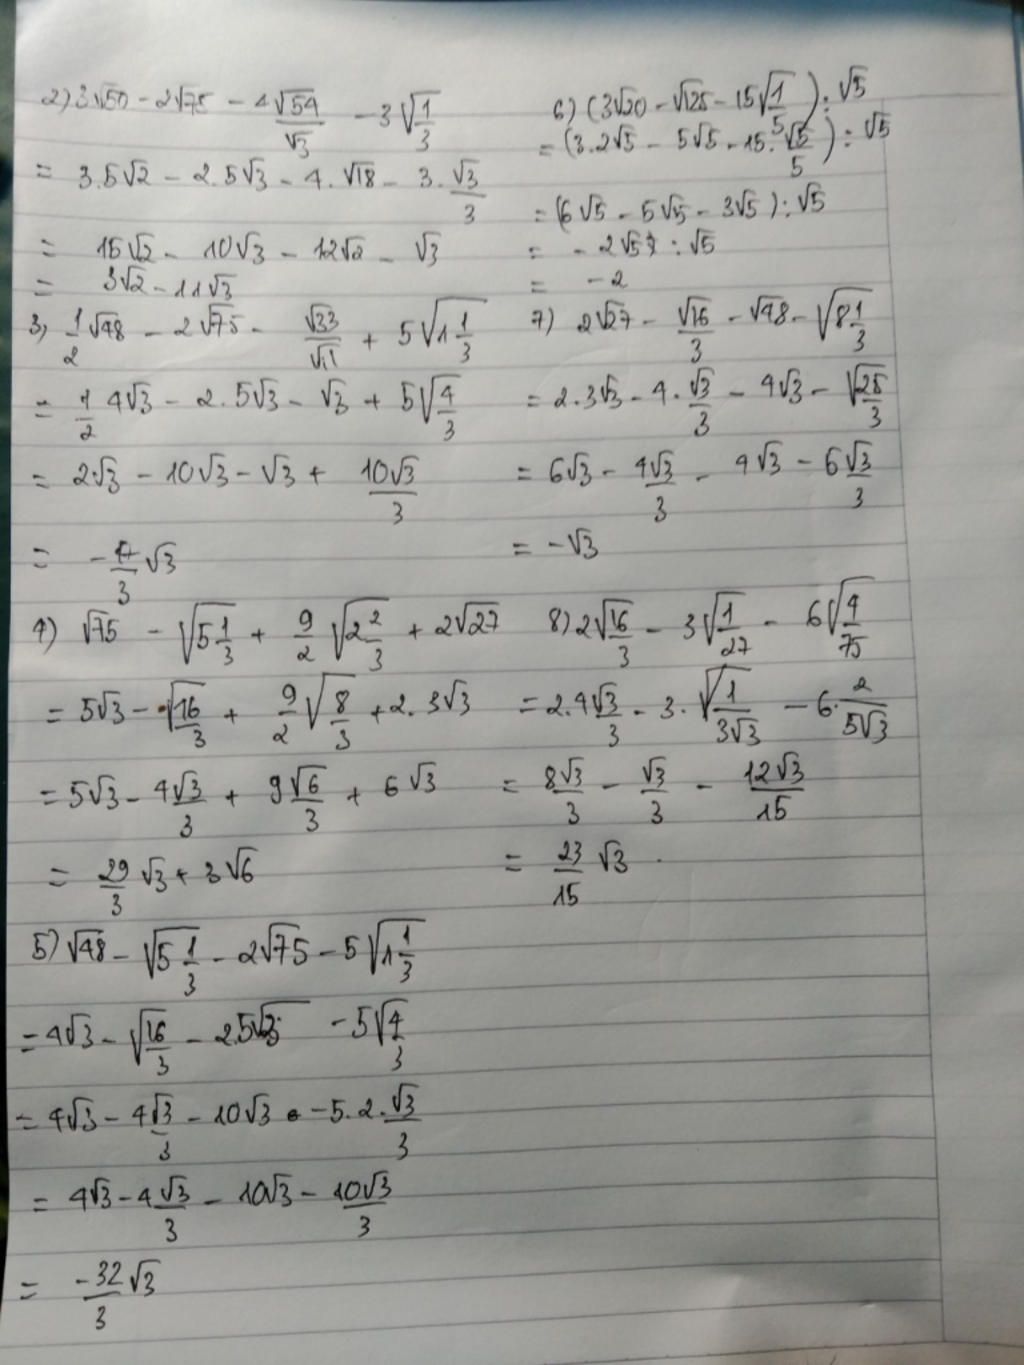 2) 3√50 - 2√75 - 4√54/√3 - 3√(1/3)
= 3.5√2 - 2.5√3 - 4.√18 - 3.√3/3
= 15√2 - 10√3 - 12√2 - √3
= 3√2 - 11√3
3) 1/2 √48 - 2√75 - √33/√11 + 5√(1 1/3)
= 1/2 4√3 - 2.5√3 - √3 + 5√(4/3)
= 2√3 - 10√3 - √3 + 10√3/3
= - /3 √3
4) √75 - √(5 1/3) + 9/2 √(2 2/3) + 2√27
= 5√3 - √(16/3) + 9/2 √(8/3) + 2.3√3
= 5√3 - 4√3/3 + 9√6/3 + 6√3
= 29/3 √3 + 3√6
5) √48 - √(5 1/3) - 2√75 - 5√(1 1/3)
= 4√3 - √(16/3) - 2.5√3 - 5√(4/3)
= 4√3 - 4√3/3 - 10√3 - 5.2.√3/3
= 4√3 - 4√3/3 - 10√3 - 10√3/3
= -32/3 √3
6) (3√20 - √125 - 15√(1/5)) : √5
= (3.2√5 - 5√5 - 15.√5/5) : √5
= (6√5 - 5√5 - 3√5) : √5
= -2√5 : √5
= -2
7) 2√27 - √16/3 - √48 - √(8 1/3)
= 2.3√3 - 4.√3/3 - 4√3 - √(25/3)
= 6√3 - 4√3/3 - 4√3 - 6√3/3
= -√3
8) 2√(16/3) - 3√(1/27) - 6√(4/75)
= 2.4√3/3 - 3.√(1/3√3) - 6.2/5√3
= 8√3/3 - √3/3 - 12√3/15
= 23/15 √3